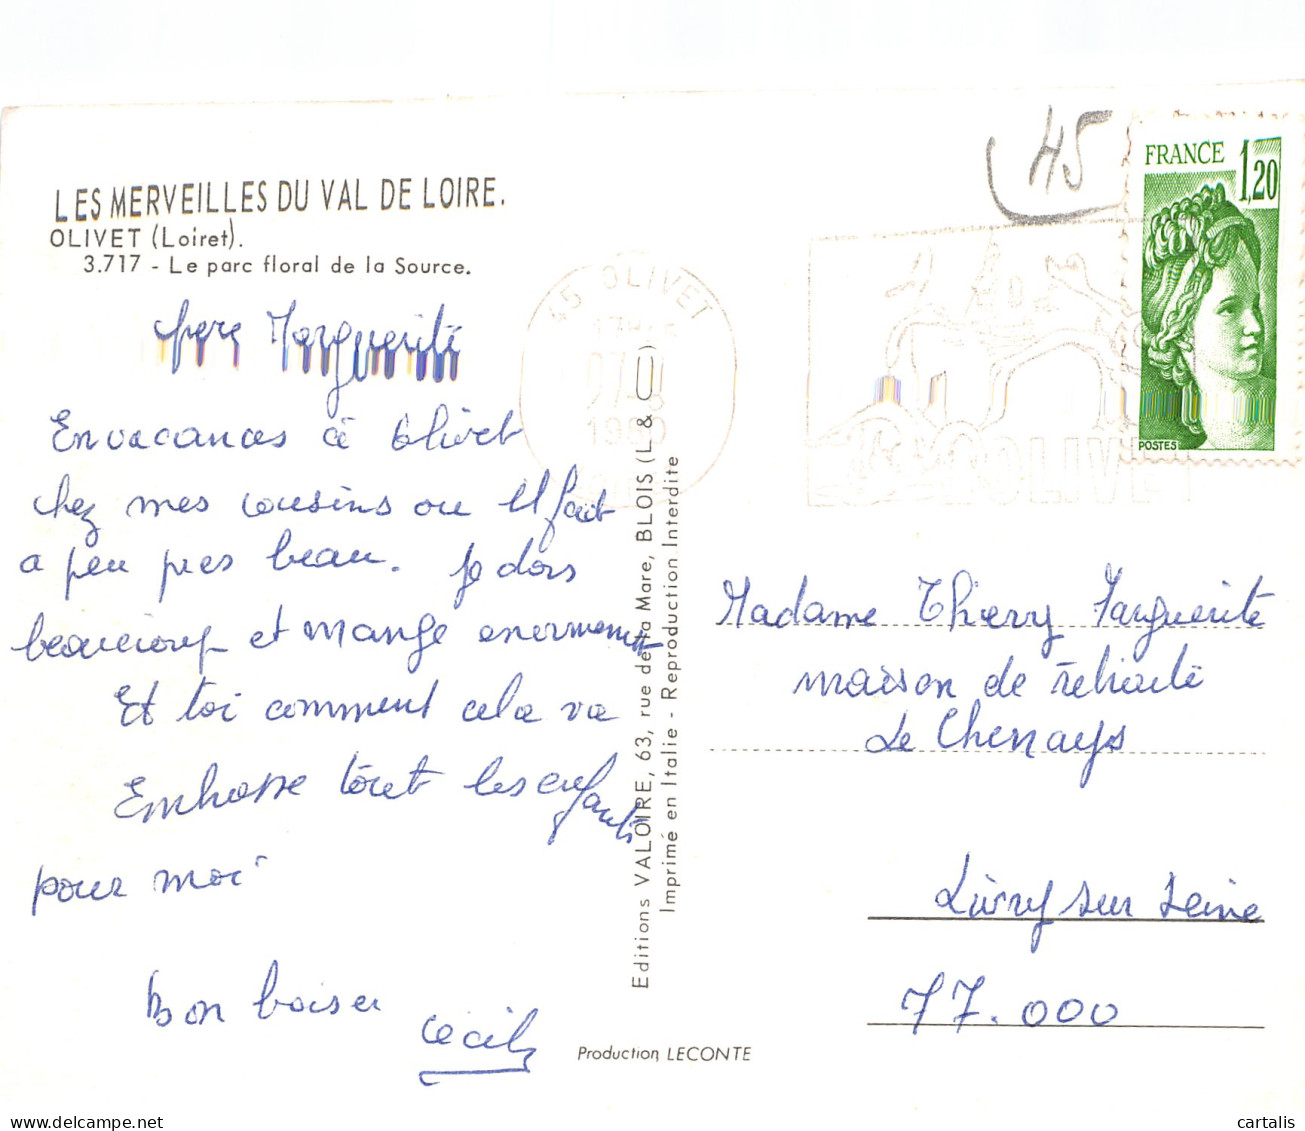 45
FRANCE 1,20
POSTES
LES MERVEILLES DU VAL DE LOIRE.
OLIVET (Loiret).
3.717 - Le parc floral de la Source.
45 OLIVET
1980
OLIVET
chere Marguerite
En vacances à Olivet
chez mes cousins ou il fait
a peu pres beau. Je dors
beaucoup et mange enormement
Et toi comment cela va
Embrasse tout les enfants
pour moi
Bon baiser
Cecile
Editions VALOIRE, 63, rue de la Mare, BLOIS (L & C)
Imprimé en Italie - Reproduction Interdite
Madame Thiery Marguerite
maison de retraite
Le Chenays
Livry sur Seine
77.000
Production LECONTE
cartalis
delcampe.net